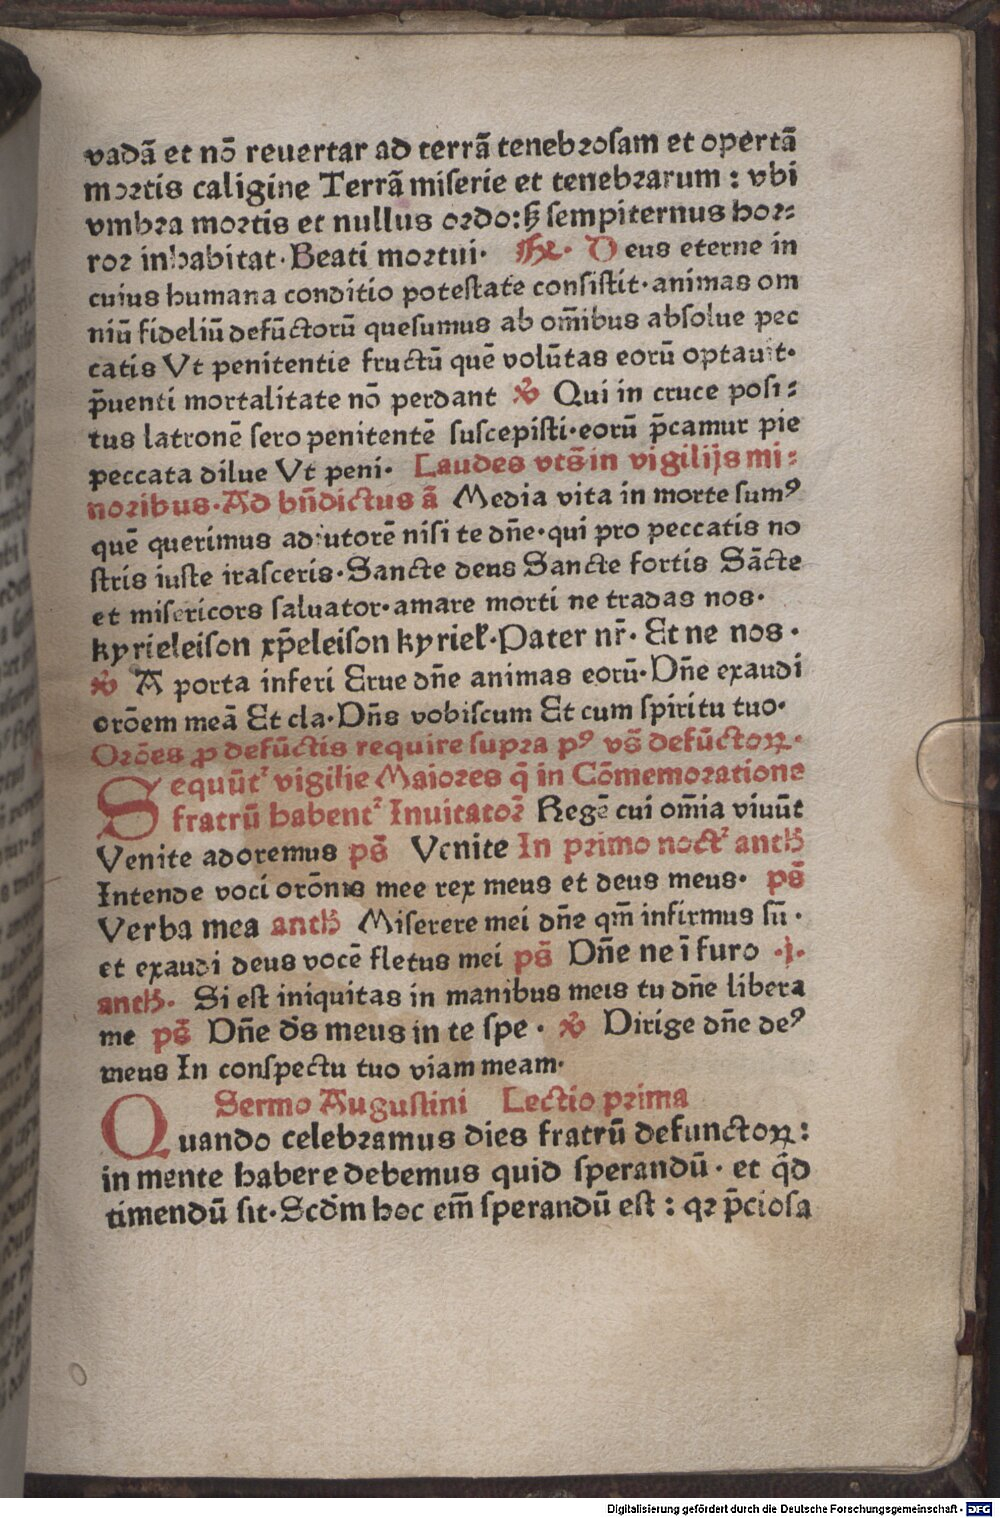 vadā et nō reuertar ad terrā tenebrosam et opertā
mortis caligine Terrā miserie et tenebrarum : vbi
vmbra mortis et nullus ordo: sꝫ sempiternus hor⸗
ror inhabitat· Beati mortui· Deus eterne in
cuius humana conditio potestate consistit· animas om
niū fideliū defūctorū quesumus ab om̄ibus absolue pec
catis Vt penitentie fructū quē volūtas eorū optauit·
p̄uenti mortalitate nō perdant ℣ Qui in cruce posi⸗
tus latronē sero penitentē suscepisti· eorū p̄camur pie
peccata dilue Vt peni· Laudes vts̄ in vigilijs mi⸗
noribus· Ad bn̄dictus ā Media vita in morte sumꝰ
quē querimus adiutorē nisi te dn̄e· qui pro peccatis no
stris iuste irasceris· Sancte deus Sancte fortis Sācte
et misericors saluator· amare morti ne tradas nos·
kyrieleison xp̄eleison kyriel̄· Pater nr̄· Et ne nos ·
℣ A porta inferi Erue dn̄e animas eorū· Dn̄e exaudi
orōem meā Et cla· Dn̄s vobiscum Et cum spiritu tuo·
Orōes ꝓ defūctis require supra pꝰ vs̄ defūctoꝝ·
Sequūt᷑ vigilie Maiores q̄ in Cōmemoratione
fratrū habent᷑ Inuitator̄ Regē cui om̄ia viuūt
Venite adoremus ps̄ Venite In primo noct᷑ anth̄
Intende voci orōnis mee rex meus et deus meus· ps̄
Verba mea anth̄ Miserere mei dn̄e qm̄ infirmus sū ·
et exaudi deus vocē fletus mei ps̄ Dn̄e ne ī furo ·j·
anth̄· Si est iniquitas in manibus meis tu dn̄e libera
me ps̄ Dn̄e d̄s meus in te spe · ℣ Dirige dn̄e deꝰ
meus In conspectu tuo viam meam·
Sermo Augustini Lectio prima
Quando celebramus dies fratrū defunctoꝝ :
in mente habere debemus quid sperandū · et q̄d
timendū sit· Scd̄m hoc em̄ sperandū est : qꝛ p̄ciosa
Digitalisierung gefördert durch die Deutsche Forschungsgemeinschaft - DFG